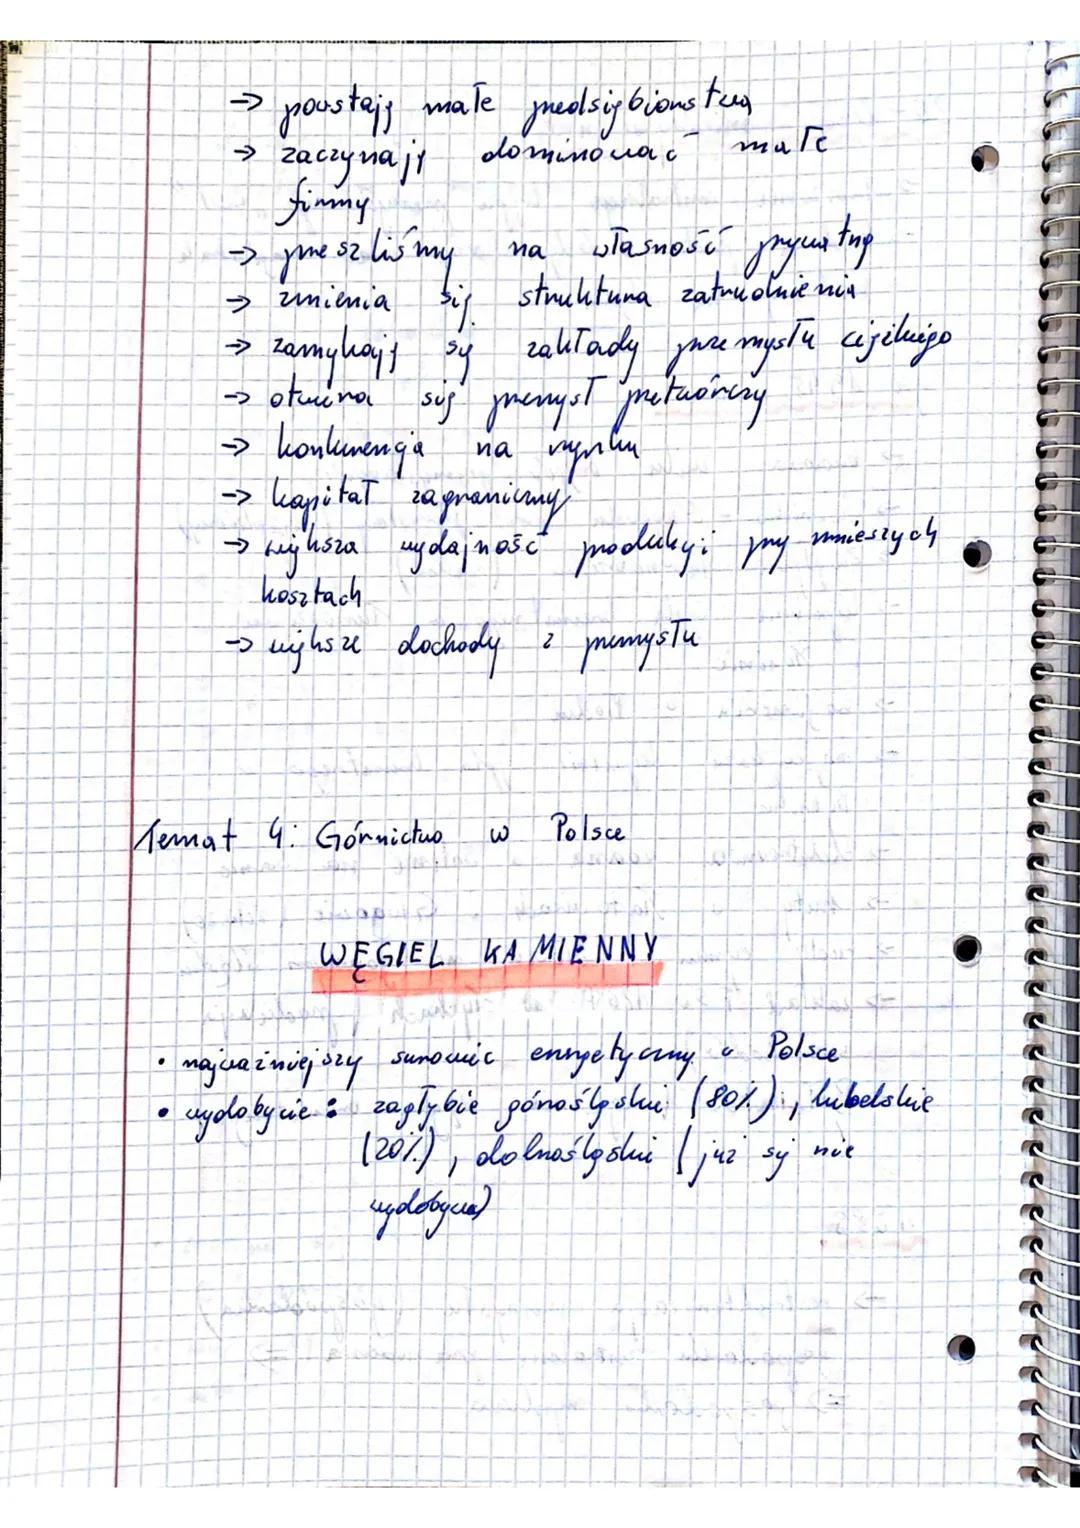 → powstają małe przedsiębiorstwa
→ zaczynają dominować małe
firmy
→ przeszliśmy na własność prywatną
→ zmienia się struktura zatrudnienia
→ zamykają są zakłady przemysłu ciężkiego
→ otwiera się przemysł przetwórczy
→ konkurencja na rynku
→ kapitał zagraniczny
→ większa wydajność produkcji przy mnieszych
kosztach
→ większe dochody z przemysłu
Temat 4: Górnictwo w Polsce
WĘGIEL KAMIENNY
• najważniejszy surowiec energetyczny w Polsce
• wydobycie: zagłębie górnośląskie (80%), lubelskie
(20%), dolnośląskie (już są nie
wydobywa)